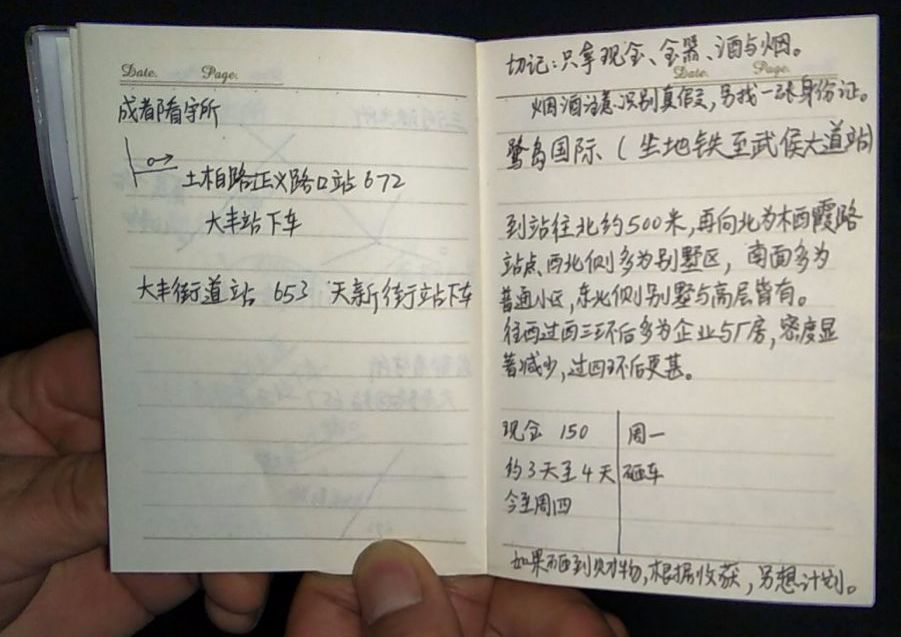 Date. Page.
成都看守所
土柏路正义路口站 672
大丰站下车
大丰街道站 653 天新街站下车
切记:只拿现金、金器、酒与烟。
Date. Page.
烟酒注意识别真假,另找一张身份证。
鹭岛国际、(坐地铁至武侯大道站)
到站往北约500米,再向北为木西霞路
站点西北侧多为别墅区,南面多为
普通小区,东北侧别墅与高层皆有。
往西过西三环后多为企业与厂房,密度显
著减少,过四环后更甚。
现金 150 周一
约3天至4天 砸车
今至周四
如果砸到财物,根据收获,另想计划。